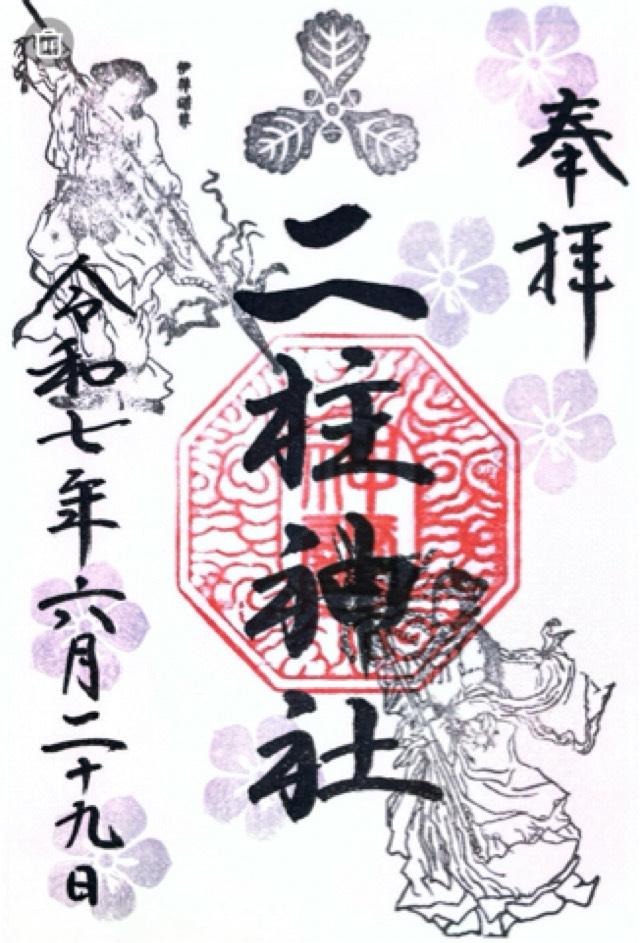 奉拝
二柱神社
令和七年六月二十九日